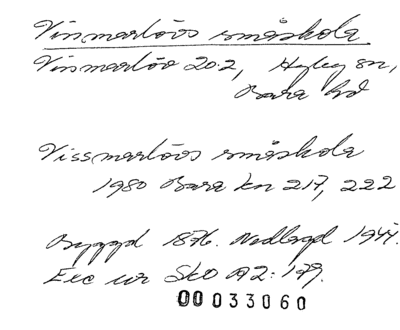 Vinmarlövs småskola
Vinmarlöv 20:2, Hyby sn,
Bara hd
Vissmarlövs småskola
1980 Bara kn 217, 222
Byggd 1876. Nedlagd 1944.
Exc ur SkO A2:179.
00033060